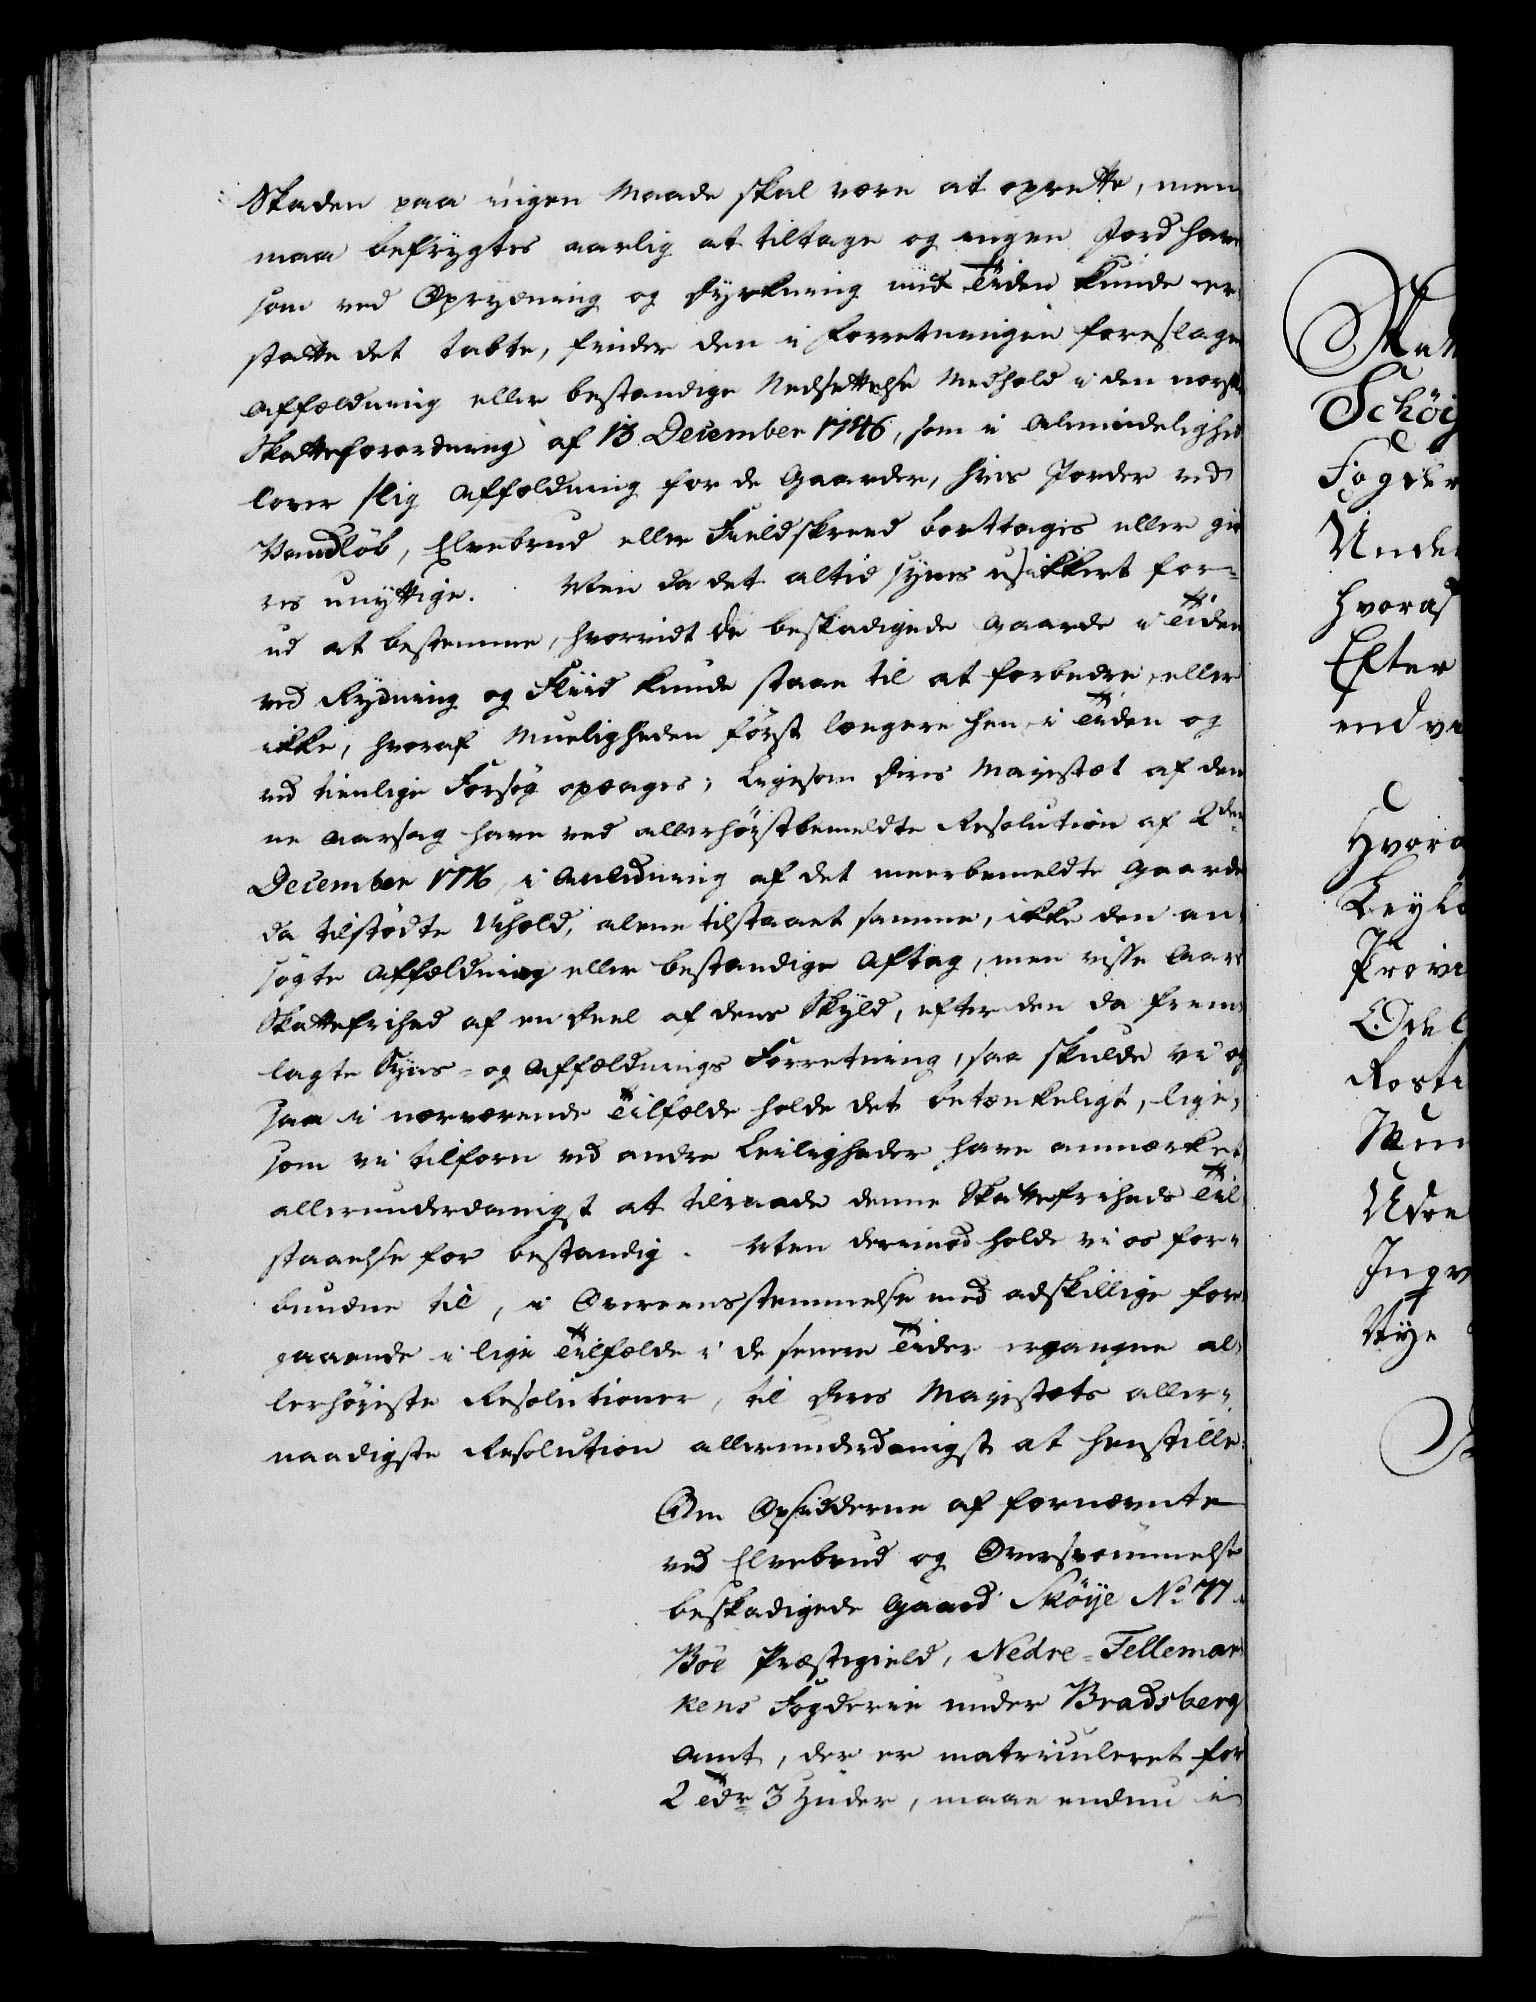 Skaden paa ingen Maade skal være at oprette, men
maa befrygtes aarlig at tiltage og ingen Jord have
som ved Oprydning og Dyrkning med Tiden kunde er-
statte det tabte, finder den i Forretningen foreslagne
Affældning eller bestandige Nedsettelse Medhold i den norske
Skatteforordning af 13. December 1746, som i Almindelighed
lover slig Affældning for de Gaarder, hvis Jorder ved
Vandløb, Elvebrud eller Fieldskreed borttages eller giø-
res unyttige. Men da det altid synes usikkert for-
ud at bestemme, hvorvidt de beskadigede Gaarde i Tiden
ved Rydning og Fliid kunde staae til at forbedre, eller
ikke, hvoraf Mueligheden først længere hen i Tiden og
ved tienlige Forsøg opdages; Ligesom Deres Majestæt af den-
ne Aarsag have ved allerhøistbemeldte Resolution af 2den
December 1776, i Anledning af det meerbemeldte Gaarde
da tilstødte Uheld, alene tilstaaet samme, ikke den an-
søgte Affældning eller bestandige Aftag, men visse Aars
Skattefrihed af en Deel af dens Skyld, efter den da frem-
lagte Syns- og Affældnings Forretning, saa skulde vi og-
saa i nærværende Tilfælde holde det betænkeligt, lige-
som vi tilforn ved andre Leiligheder have anmærket
allerunderdanigst at tilraade denne Skattefriheds Til-
staaelse for bestandig. Men derimod holde vi os for-
bundne til, i Overeensstemmelse med adskillige fore-
gaaende i lige Tilfælde i de senere Tider ergangne al-
lerhøieste Resolutioner, til Deres Majestæts aller-
naadigste Resolution allerunderdanigst at henstille:
Om Opsidderne af fornævnte
ved Elvebrud og Oversvømmelse
beskadigede Gaard Skøye No 77 i
Bøe Præstegield, Nedre-Tellemar-
kens Fogderie under Bradsberg
Amt, der er matriculeret for
2 Tdr 3 Huder, maae endnu i
Schöy
Fogder
Under
hvoraf
Efter
end v
Hvora
Leyl
Provi
Odel
Rost
Men
Udre
Ingv
Nye